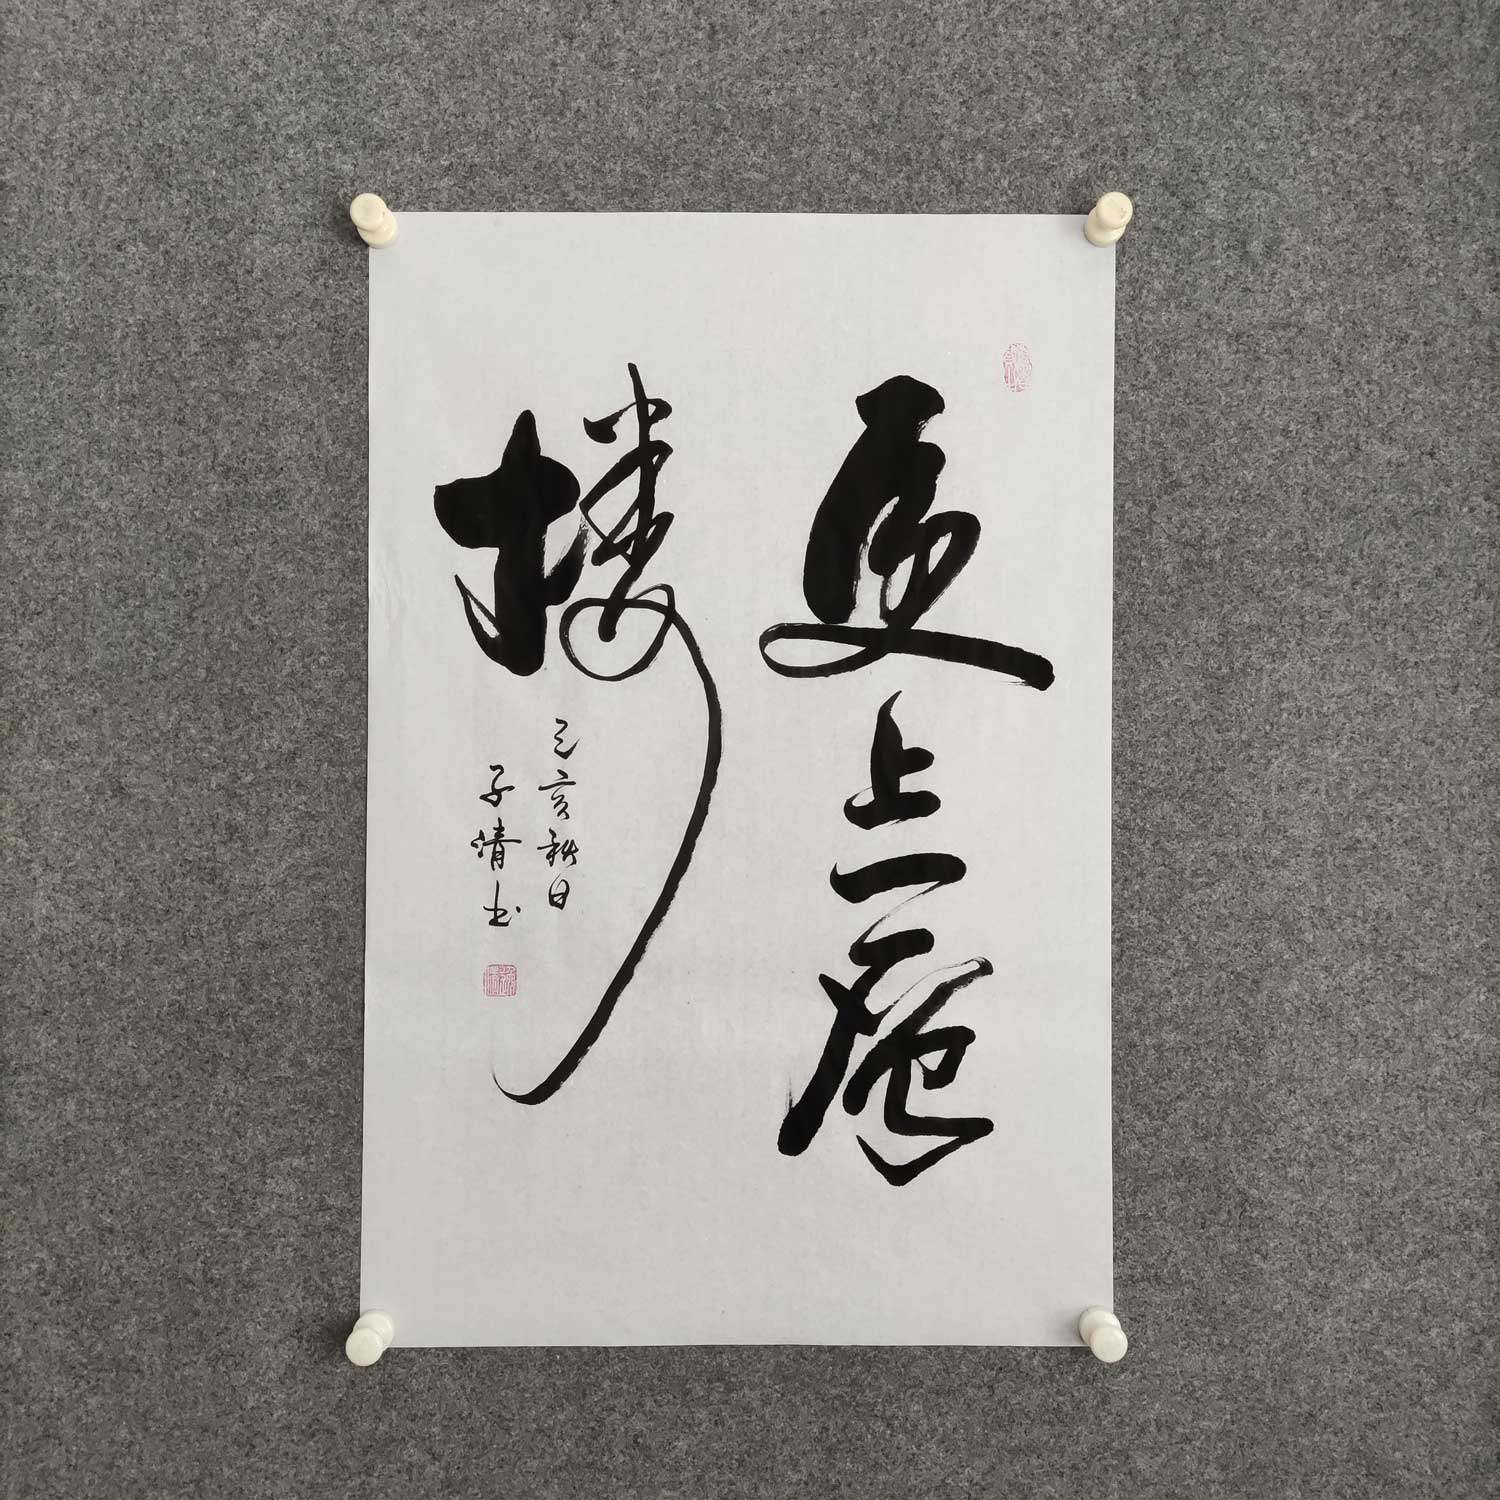 更上一层
楼
己亥秋日
子清书